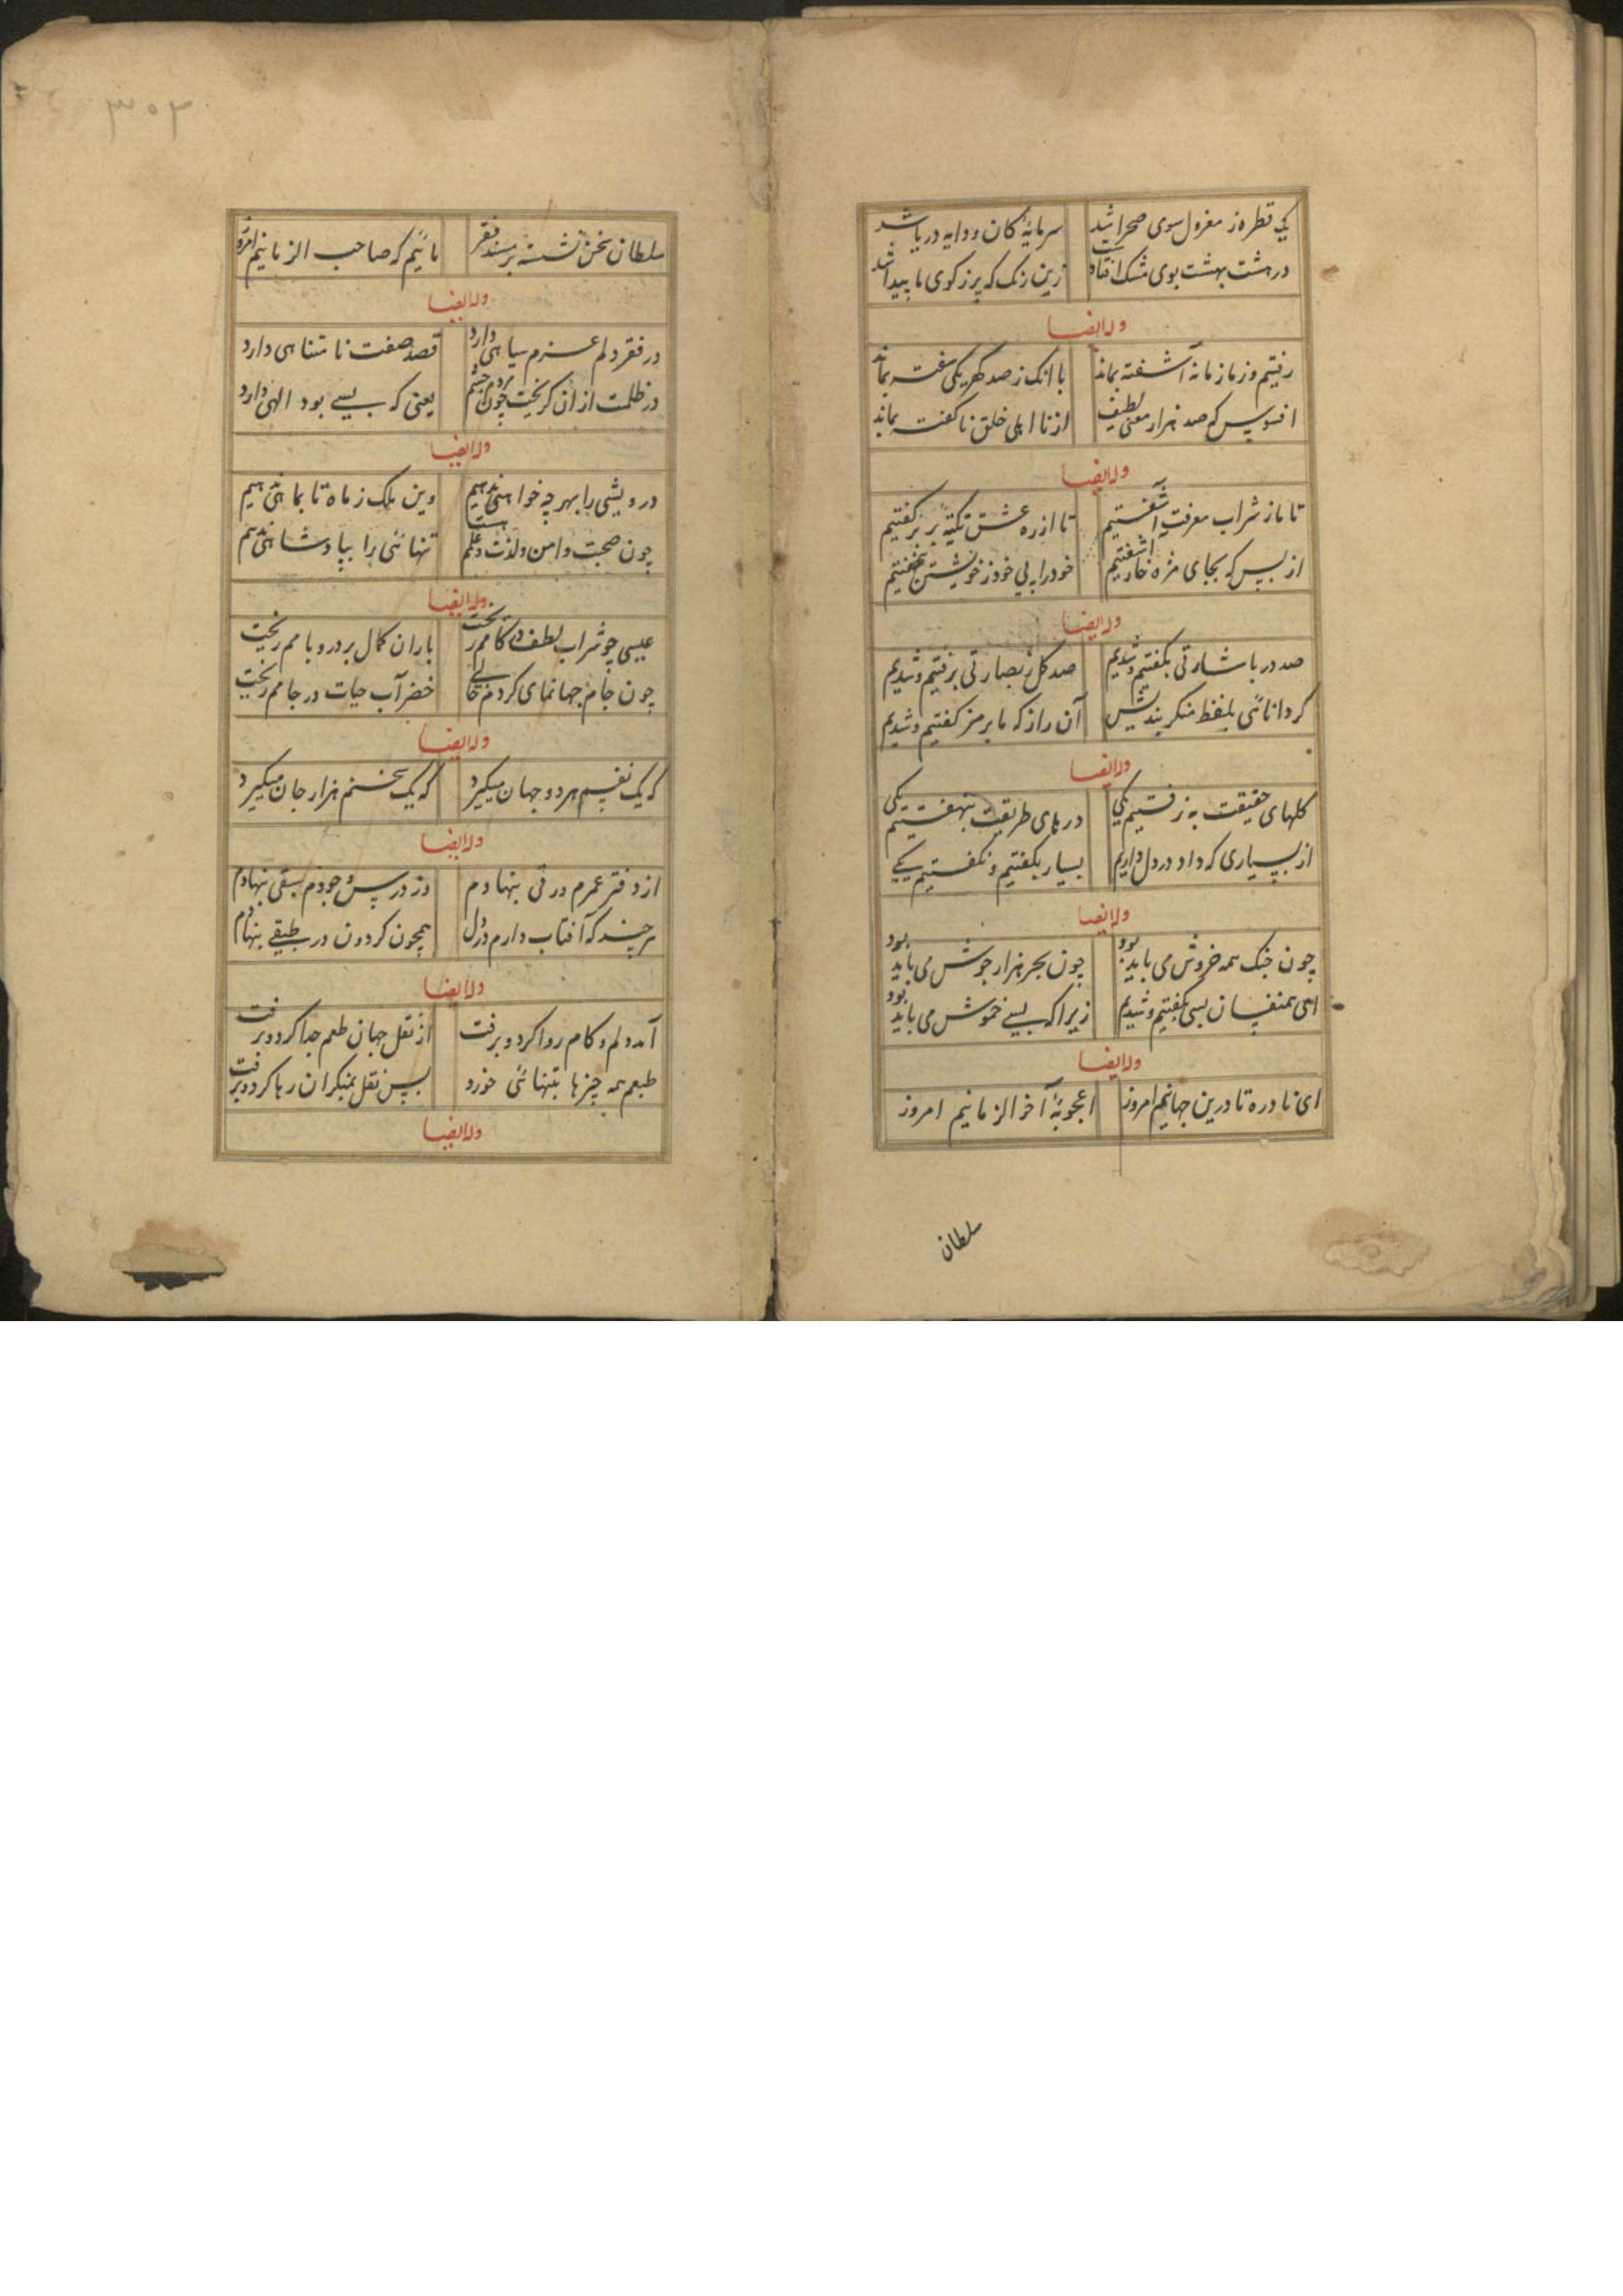 یک قطره ز مغزول سوی صحرا شد سرمایهٔ کان و دایه دریا شد
در هشت بهشت بوی مشک افتادست زین زنک که پر ز کوی ما پیدا شد
وله ایضا
رفتیم و ز ما زمانه آشفته بماند با انک ز صد کهر یکی سفته بماند
افسوس که صد هزار معنی لطیف از نا اهلی خلق ناکفته بماند
وله ایضا
تا ما ز شراب معرفت آشفتیم تا از ره عشق نکتهٔ بر بر کفتیم
از بس که بجای مژه خار خود را به بی خودی ز خویشتن
وله ایضا
صد در باشارتی بکفتیم و شدیم صد کل ببصارتی برفتیم و شدیم
کر دانائی بلفظ منکر بندیش آن راز که ما برمز کفتیم و شدیم
وله ایضا
کلهای حقیقت به زفتیم یکی درهای طریقت بنهفتیم یکی
از بسیاری که داد در دل داریم بسیار بکفتیم و نکفتیم یکی
وله ایضا
چون جنک همه خروش می باید بود چون بحر هزار جوش می باید بود
ای همنفسان بسی بکفتیم و شدیم زیرا که بسی خموش می باید بود
وله ایضا
ای نادره نادرین جهانیم امروز اعجوبهٔ آخر الزمانیم امروز
سلطان
۳۰۲
سلطان سخن نشسته بر مسند فقر مائیم که صاحب الزمانیم امروز
وله ایضا
در فقر دلم عزم سیاهی دارد قصد صفت نامتناهی دارد
در ظلمت از ان کریخت چون مردم چشم یعنی که بسی بود الهی دارد
وله ایضا
درویشی را بهر چه خواهی ندهیم وین ملک ز ماه تا بماهی ندهیم
چون صحت و امن و لذت و علم هست تنهائی را بپادشاهی ندهیم
وله ایضا
عیسی چو شراب لطف در کامم ریخت باران کمال بر در و بامم ریخت
چون جام جهانمای کردم خالی خضر آب حیات در جامم ریخت
وله ایضا
که یک نفسم هر دو جهان میکیرد که یک سخنم هزار جان میکیرد
وله ایضا
از دفتر عمرم ورقی بنهادم وز درس وجودم سبقی بنهادم
هر چند که آفتاب دارم در دل همچون کردون در طبقی بنهادم
وله ایضا
آمد دلم و کام روا کرد و برفت از نقل جهان طعم جدا کرد و برفت
طبعم همه چیزها بتنهائی خورد پس نقل بمنکران رها کرد و برفت
وله ایضا